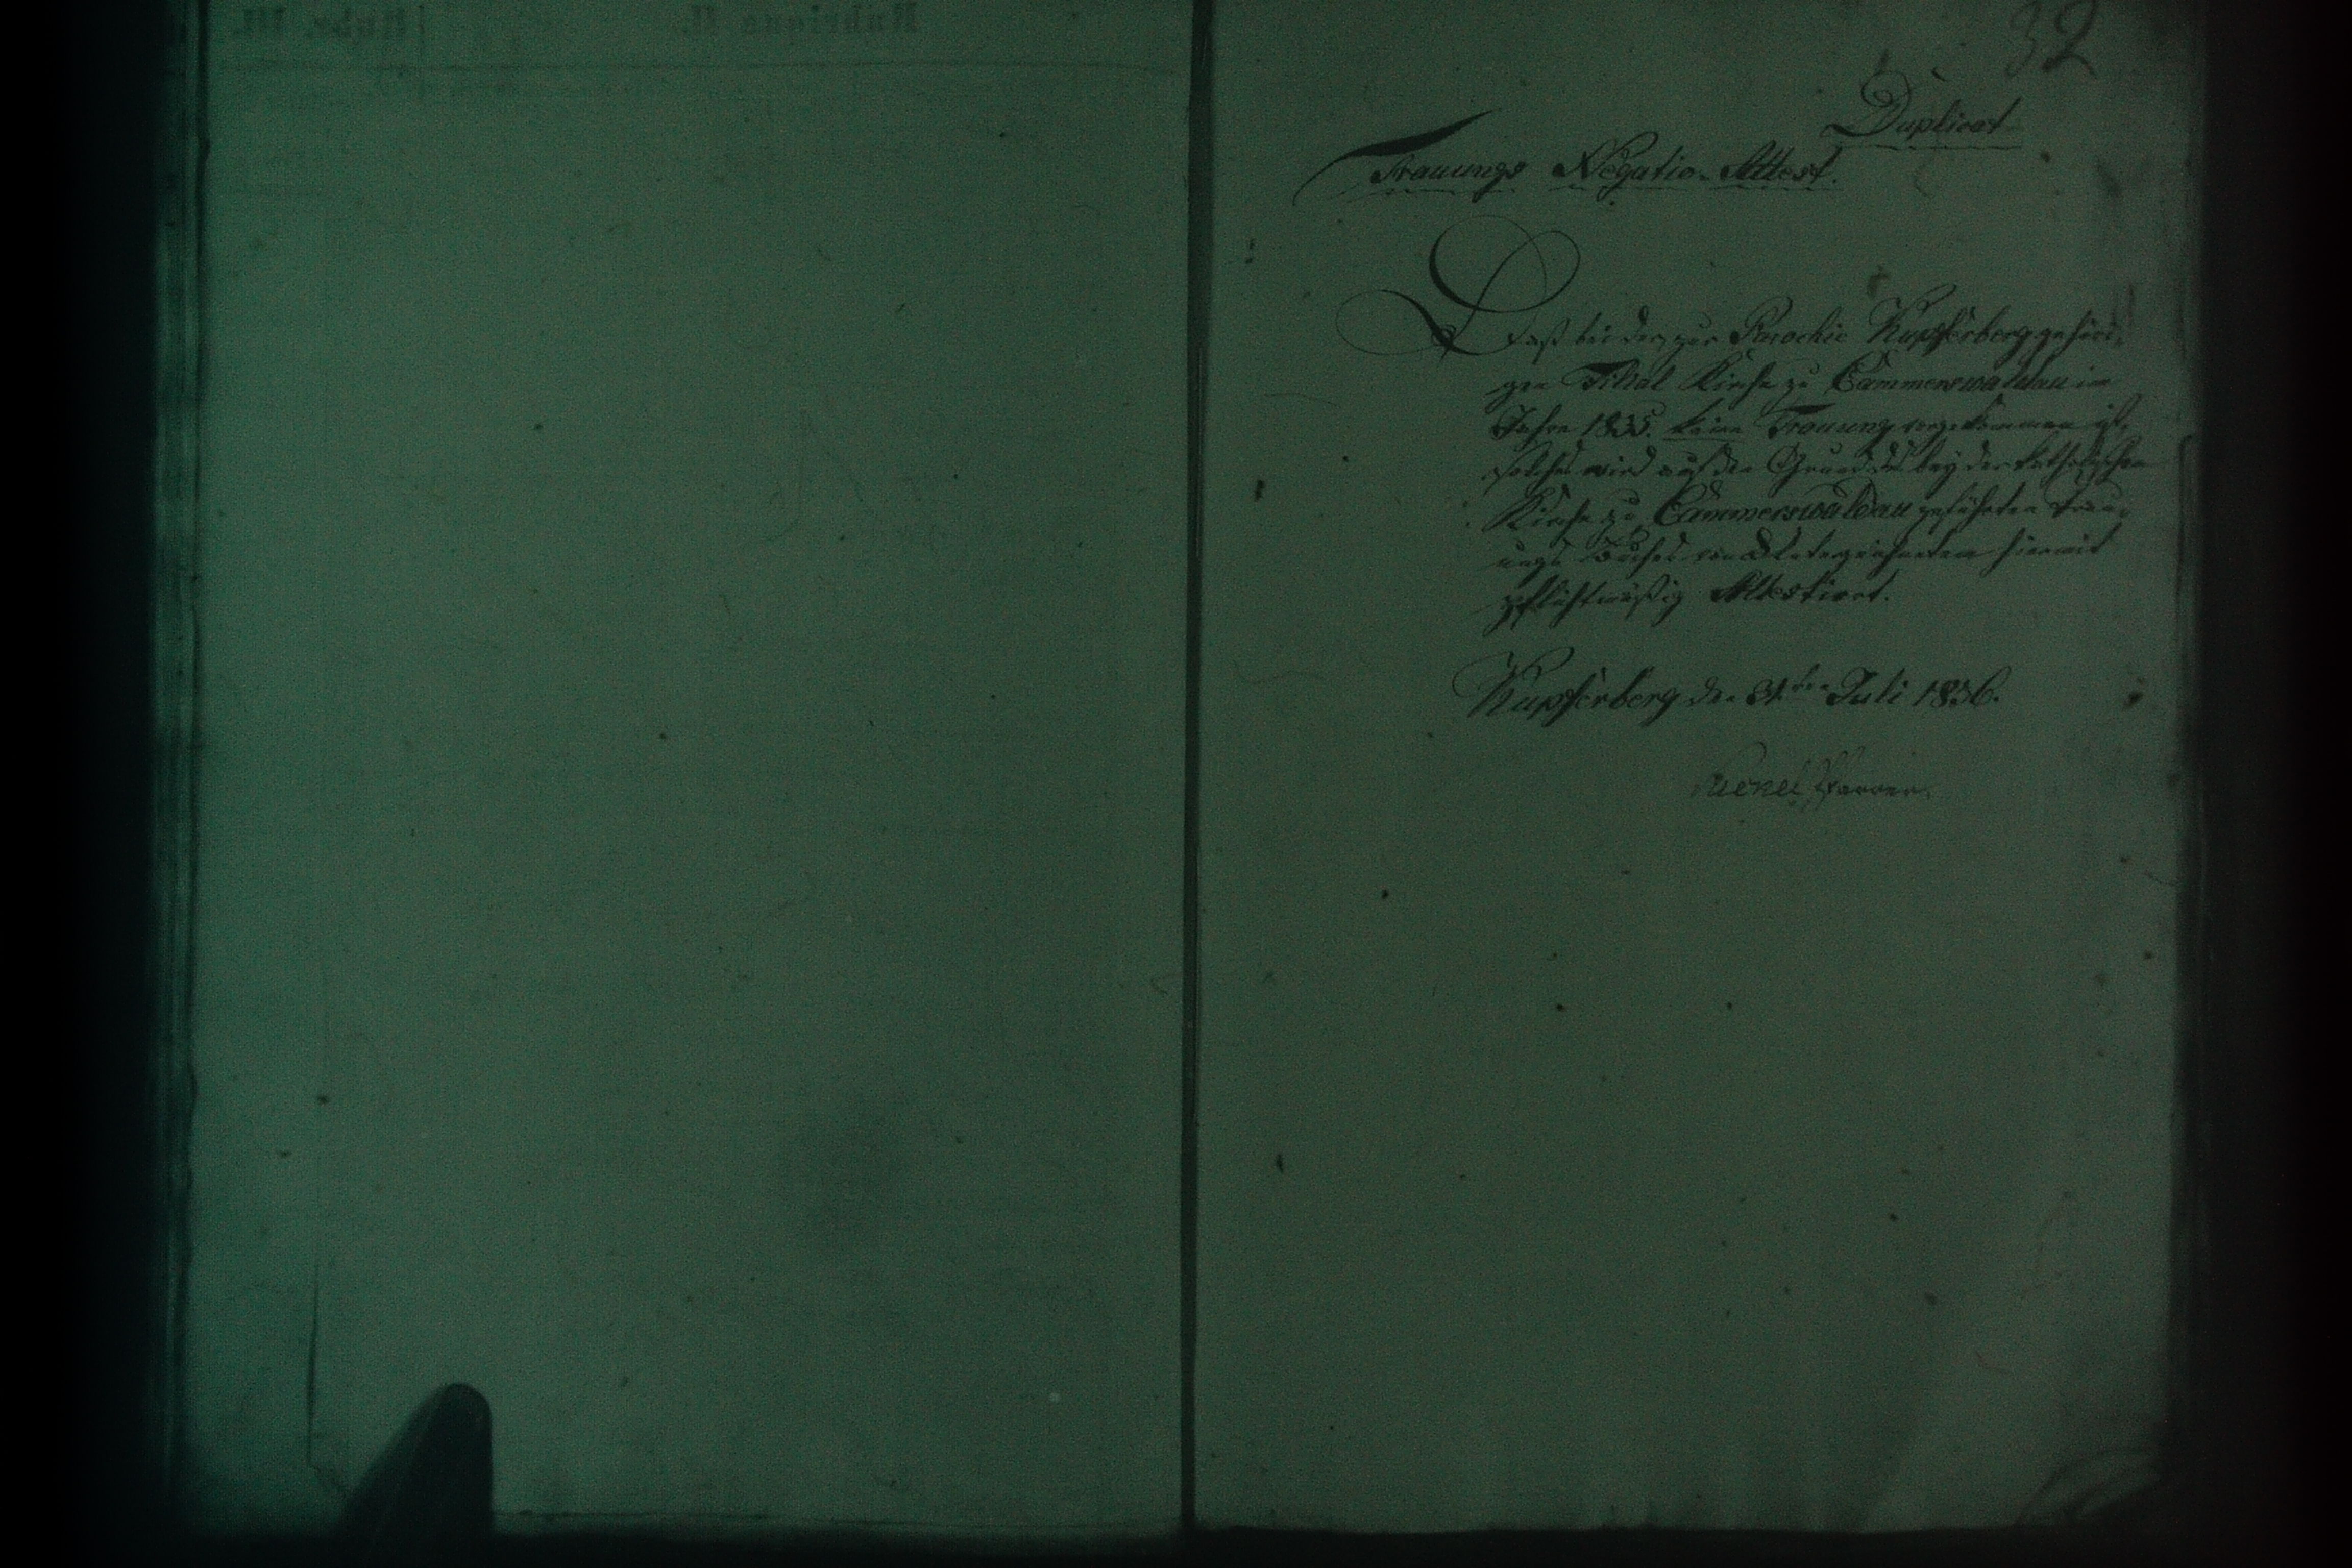 32
Duplicat
Trauungs Negations-Attest.
Daß bei der zur Parochie Kupferberg gehöri-
gen Filial Kirche zu Cammerswaldau im
Jahre 1835. keine Trauung vorgekommen ist,
solches wird auf den Grund des bey der katholischen
Kirche zu Cammerswaldau geführten Trau-
ungs Buches von Unterzeichneten hiermit
pflichtmäßig Attestirt.
Kupferberg den 31.ten Juli 1836.
Pfarrer.